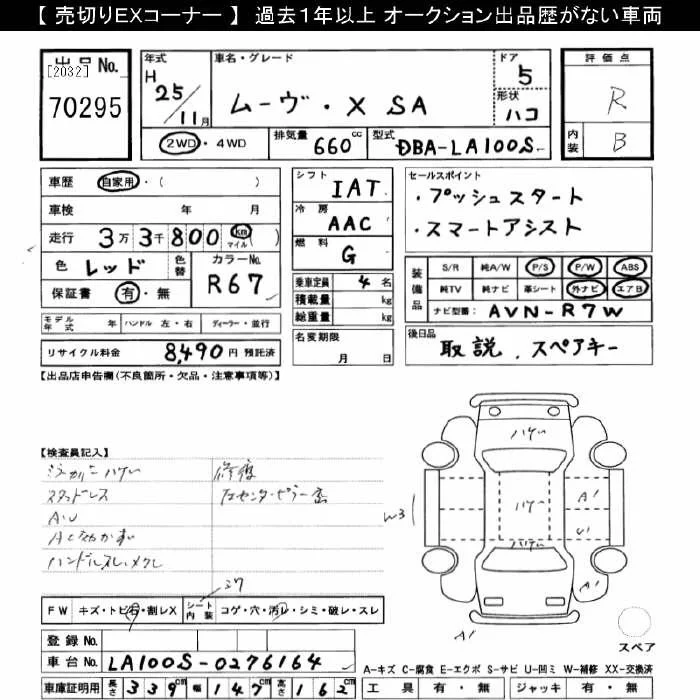 【 売切りEXコーナー 】 過去1年以上 オークション出品歴がない車両
出品 No. [2032] 70295
年式 H 25/11月
車名・グレード ムーヴ・X SA
ドア 5
形状 ハコ
評価点 R
内装 B
2WD・4WD
排気量 660 cc
型式 DBA-LA100S
車歴 自家用・( )
車検 年 月
走行 3万3千800 km マイル ( )
色 レッド 色替 カラーNo. R67
保証書 有・無
シフト IAT
冷房 AAC
燃料 G
乗車定員 4 名
積載量 kg
総重量 kg
セールスポイント
・プッシュスタート
・スマートアシスト
装備品 S/R 純A/W P/S P/W ABS
純TV 純ナビ 革シート 外ナビ エアB
ナビ型番: AVN-R7W
モデル年式 年 ハンドル 左・右 ディーラー・並行
リサイクル料金 8,490 円 預託済
名変期限 月 日
後日品 取説、スペアキー
【出品店申告欄(不良箇所・欠品・注意事項等)】
【検査員記入】
修復
スタッドレス
A.W
ハンドルスレ、メクレ
ハゲ
W3
A1
A1
A1
FW キズ・トビ石・割レX シート内装 コゲ・穴・汚レ・シミ・破レ・スレ
スペア
登録 No.
車台 No. LA100S-0276164
A-キズ C-腐食 E-エクボ S-サビ U-凹ミ W-補修 XX-交換済
車庫証明用 長さ 339cm 幅 147cm 高さ 162cm
工具 有・無 ジャッキ 有・無